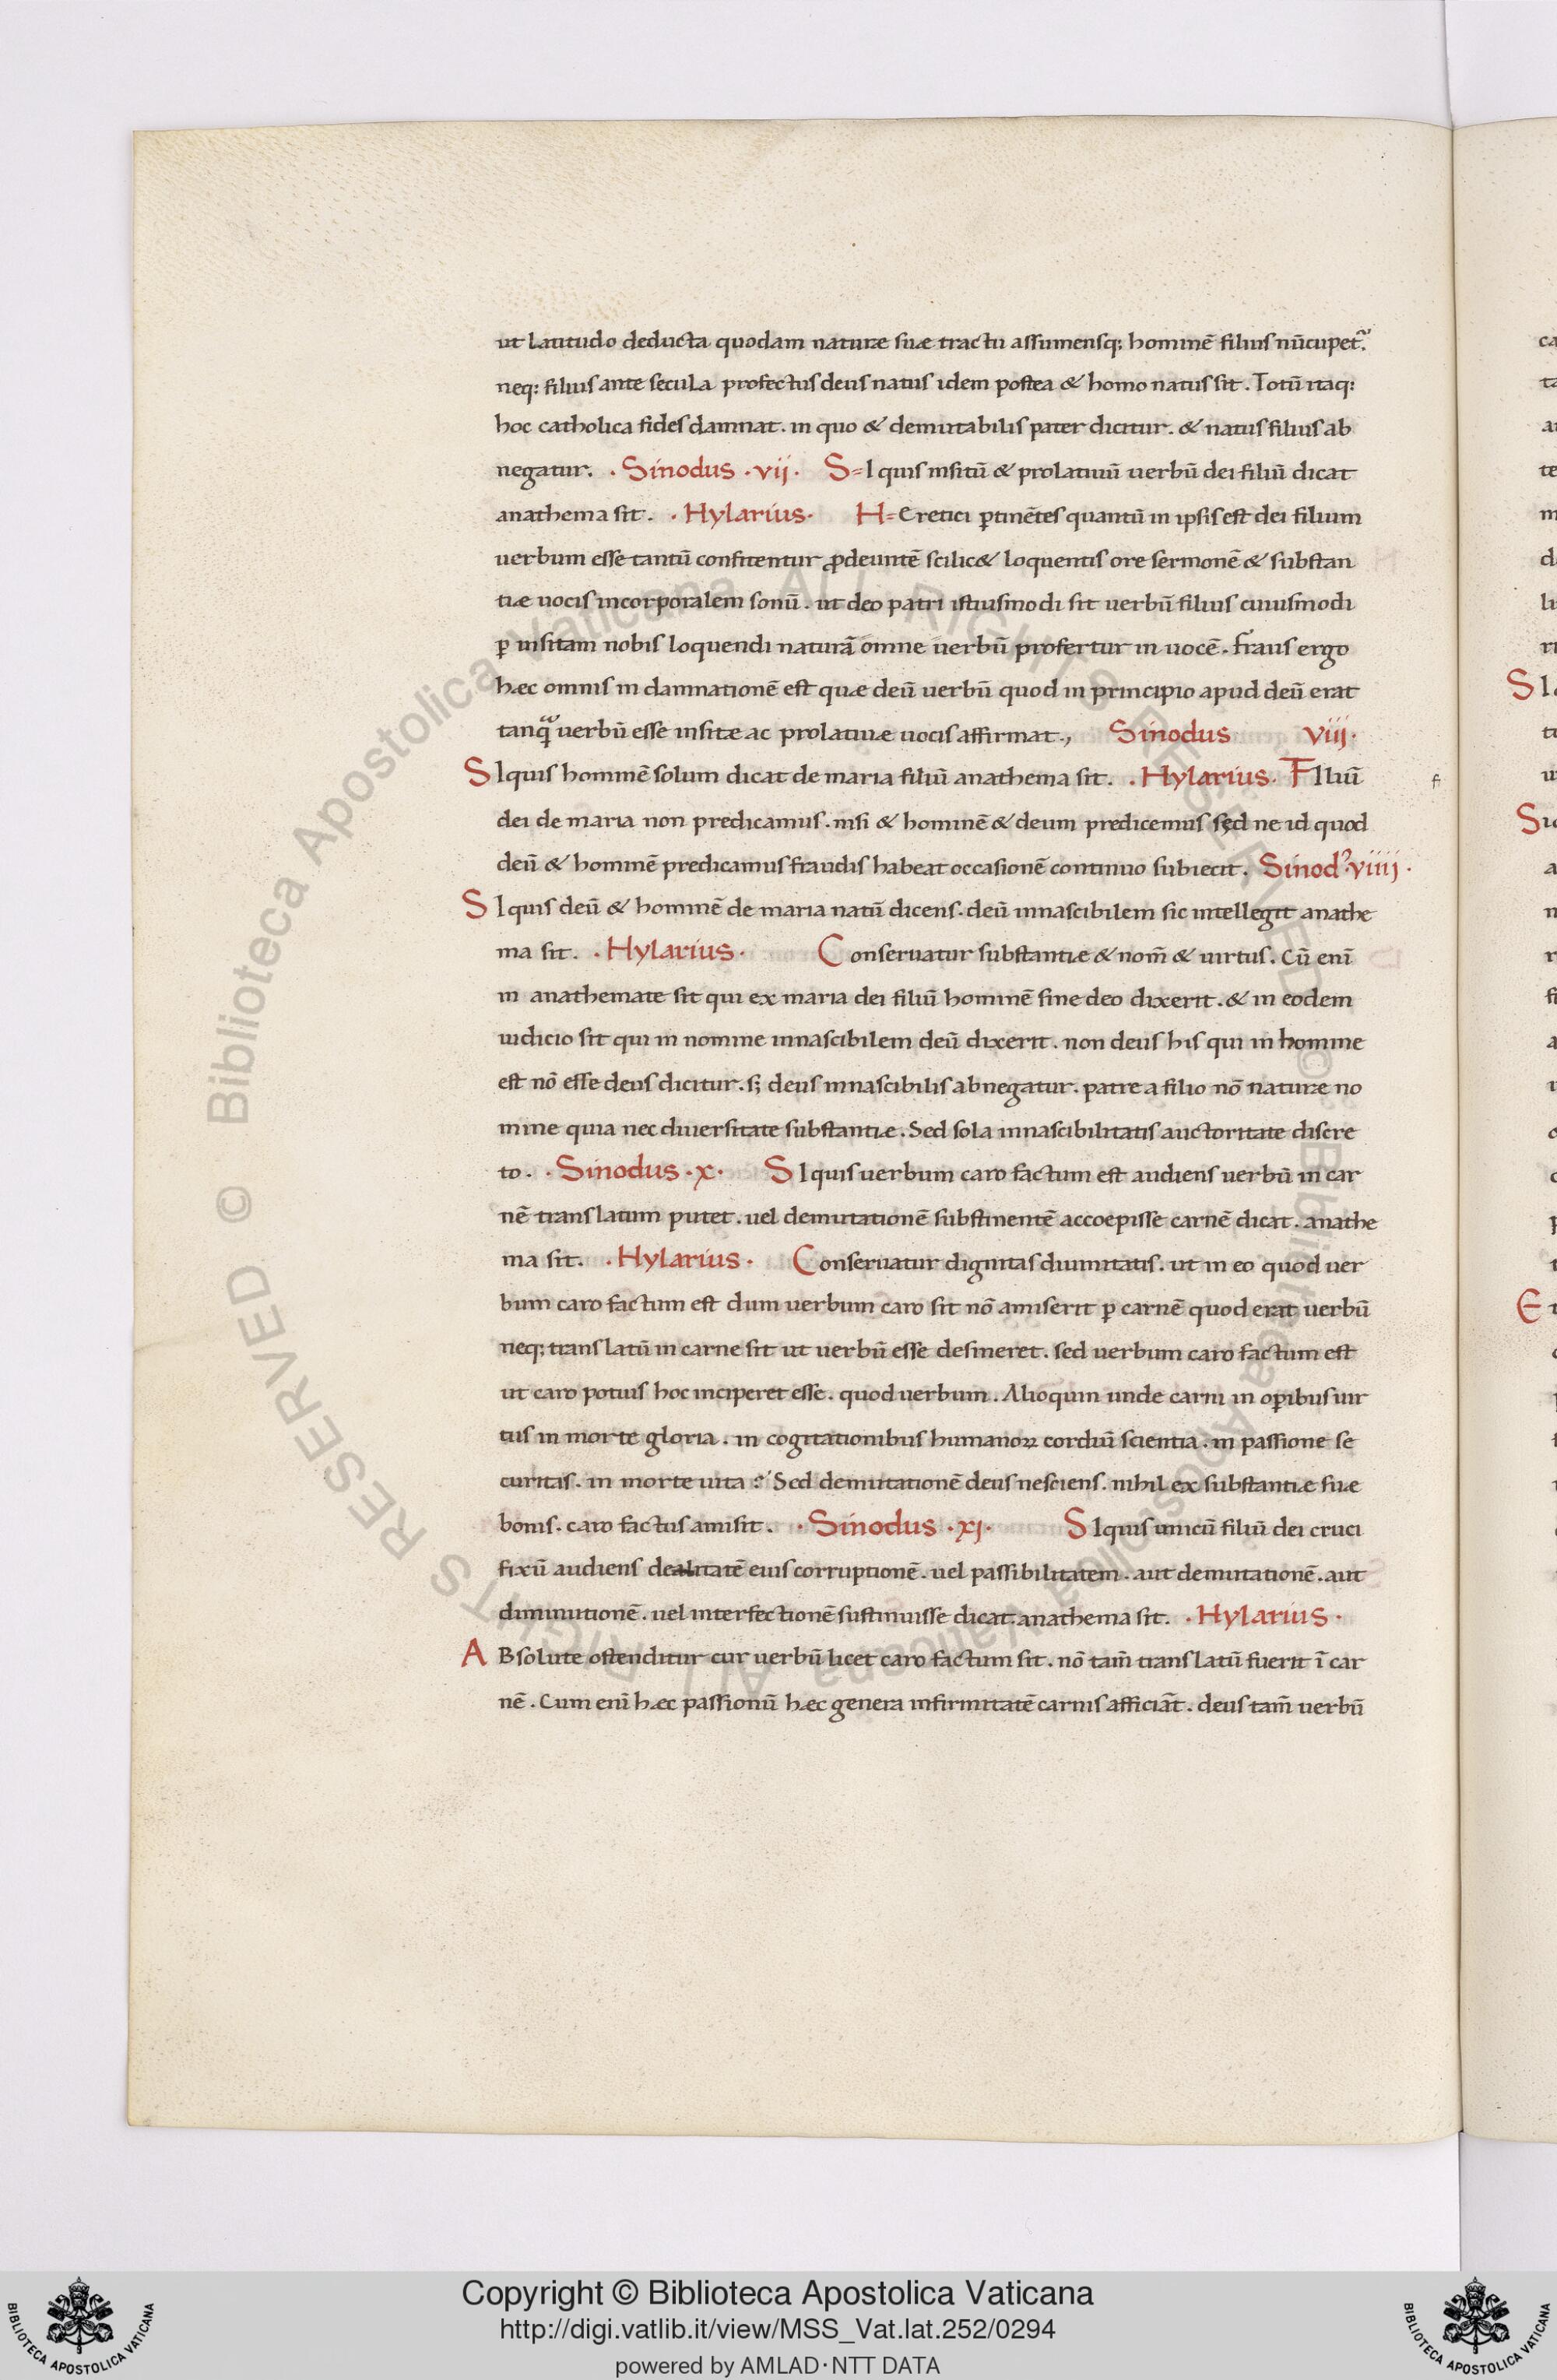 ut latitudo deducta quodam naturæ suæ tractu assumensq; hominē filius nūcupet᷑.
neq; filius ante secula profectus deus natus idem postea & homo natus sit. Totū itaq;
hoc catholica fides damnat. in quo & demutabilis pater dicitur. & natus filius ab
negatur. · Sinodus · vij · S=I quis insitū & prolatiuū uerbū dei filiū dicat
anathema sit. · Hylarius · H=Eretici ꝑtinētes quantū in ipsis est dei filium
uerbum esse tantū confitentur ꝓdeuntē scilic& loquentis ore sermonē & substan
tiæ uocis incorporalem sonū. ut deo patri istiusmodi sit uerbū filius cuiusmodi
ꝑ insitam nobis loquendi naturā omne uerbū profertur in uocē. fraus ergo
hæc omnis in damnationē est quæ deū uerbū quod in principio apud deū erat
tanq̄ uerbū esse insitæ ac prolatiuæ uocis affirmat., Sinodus viij ·
SI quis hominē solum dicat de maria filiū anathema sit. · Hylarius · FIliū
dei de maria non predicamus. nisi & hominē & deum predicemus sed ne id quod
deū & hominē predicamus fraudis habeat occasionē continuo subiecit. Sinodꝰ · viiij ·
SI quis deū & hominē de maria natū dicens. deū innascibilem sic intellegit anathe
ma sit. · Hylarius · Conseruatur substantiæ & nom̄ & uirtus. Cū enī
in anathemate sit qui ex maria dei filiū hominē sine deo dixerit. & in eodem
iudicio sit qui in nomine innascibilem deū dixerit. non deus his qui in homine
est nō esse deus dicitur. s; deus innascibilis abnegatur. patre a filio nō naturæ no
mine quia nec diuersitate substantiæ. Sed sola innascibilitatis auctoritate discre
to. · Sinodus · x · SI quis uerbum caro factum est audiens uerbū in car
nē translatum putet. uel demutationē substinentē accoepisse carnē dicat. anathe
ma sit. · Hylarius · Conseruatur dignitas diuinitatis. ut in eo quod uer
bum caro factum est dum uerbum caro sit nō amiserit ꝑ carnē quod erat uerbū
neq; translatū in carne sit ut uerbū esse desineret. sed uerbum caro factum est
ut caro potius hoc inciperet esse. quod uerbum. Alioquin unde carni in oꝑibus uir
tus in morte gloria. in cogitationibus humanoꝝ cordiū scientia. in passione se
curitas. in morte uita :' Sed demutationē deus nesciens. nihil ex substantiæ suæ
bonis. caro factus amisit. · Sinodus · xj · SI quis unicū filiū dei cruci
fixū audiens dealitatē eius corruptionē. uel passibilitatem. aut demutationē. aut
diminutionē. uel interfectionē sustinuisse dicat. anathema sit. · Hylarius ·
ABsolute ostenditur cur uerbū licet caro factum sit. nō tam̄ translatū fuerit ī car
nē. Cum enī hæc passionū hæc genera infirmitatē carnis afficiāt. deus tam̄ uerbū
Copyright © Biblioteca Apostolica Vaticana
http://digi.vatlib.it/view/MSS_Vat.lat.252/0294
powered by AMLAD·NTT DATA
BIBLIOTECA APOSTOLICA VATICANA
BIBLIOTECA APOSTOLICA VATICANA
© Biblioteca Apostolica Vaticana ALL RIGHTS RESERVED © Biblioteca Apostolica Vaticana ALL RIGHTS RESERVED